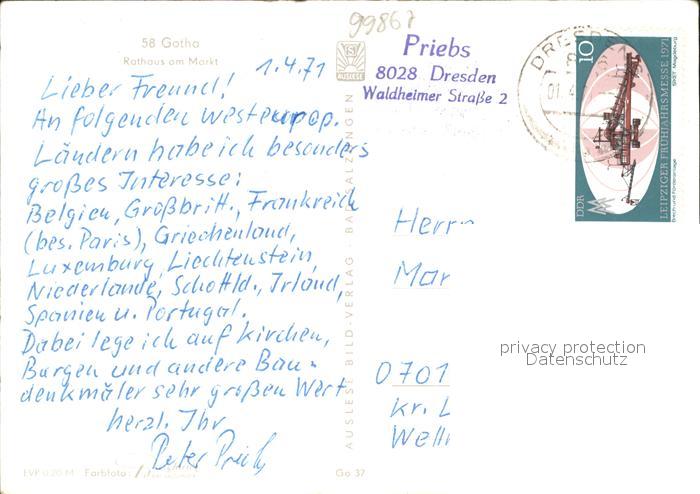 99867
58 Gotha
Rathaus am Markt
1.4.71
Lieber Freund!
An folgenden westeurop.
Ländern habe ich besonders
großes Interesse:
Belgien, Großbrit., Frankreich
(bes. Paris), Griechenland,
Luxemburg, Liechtenstein,
Niederlande, Schottld., Irland,
Spanien u. Portugal.
Dabei lege ich auf Kirchen,
Burgen und andere Bau-
denkmäler sehr großen Wert
herzl. Ihr
Peter Priebs
EVP 0.20 M Farbfoto:
Go 37
AUSLESE
AUSLESE BILD-VERLAG · BAD SALZUNGEN
Priebs
8028 Dresden
Waldheimer Straße 2
DRESDEN
10
DDR
LEIPZIGER FRÜHJAHRSMESSE 1971
SKET Magdeburg
Herrn
Mar
0701
Kr. L
privacy protection
Datenschutz